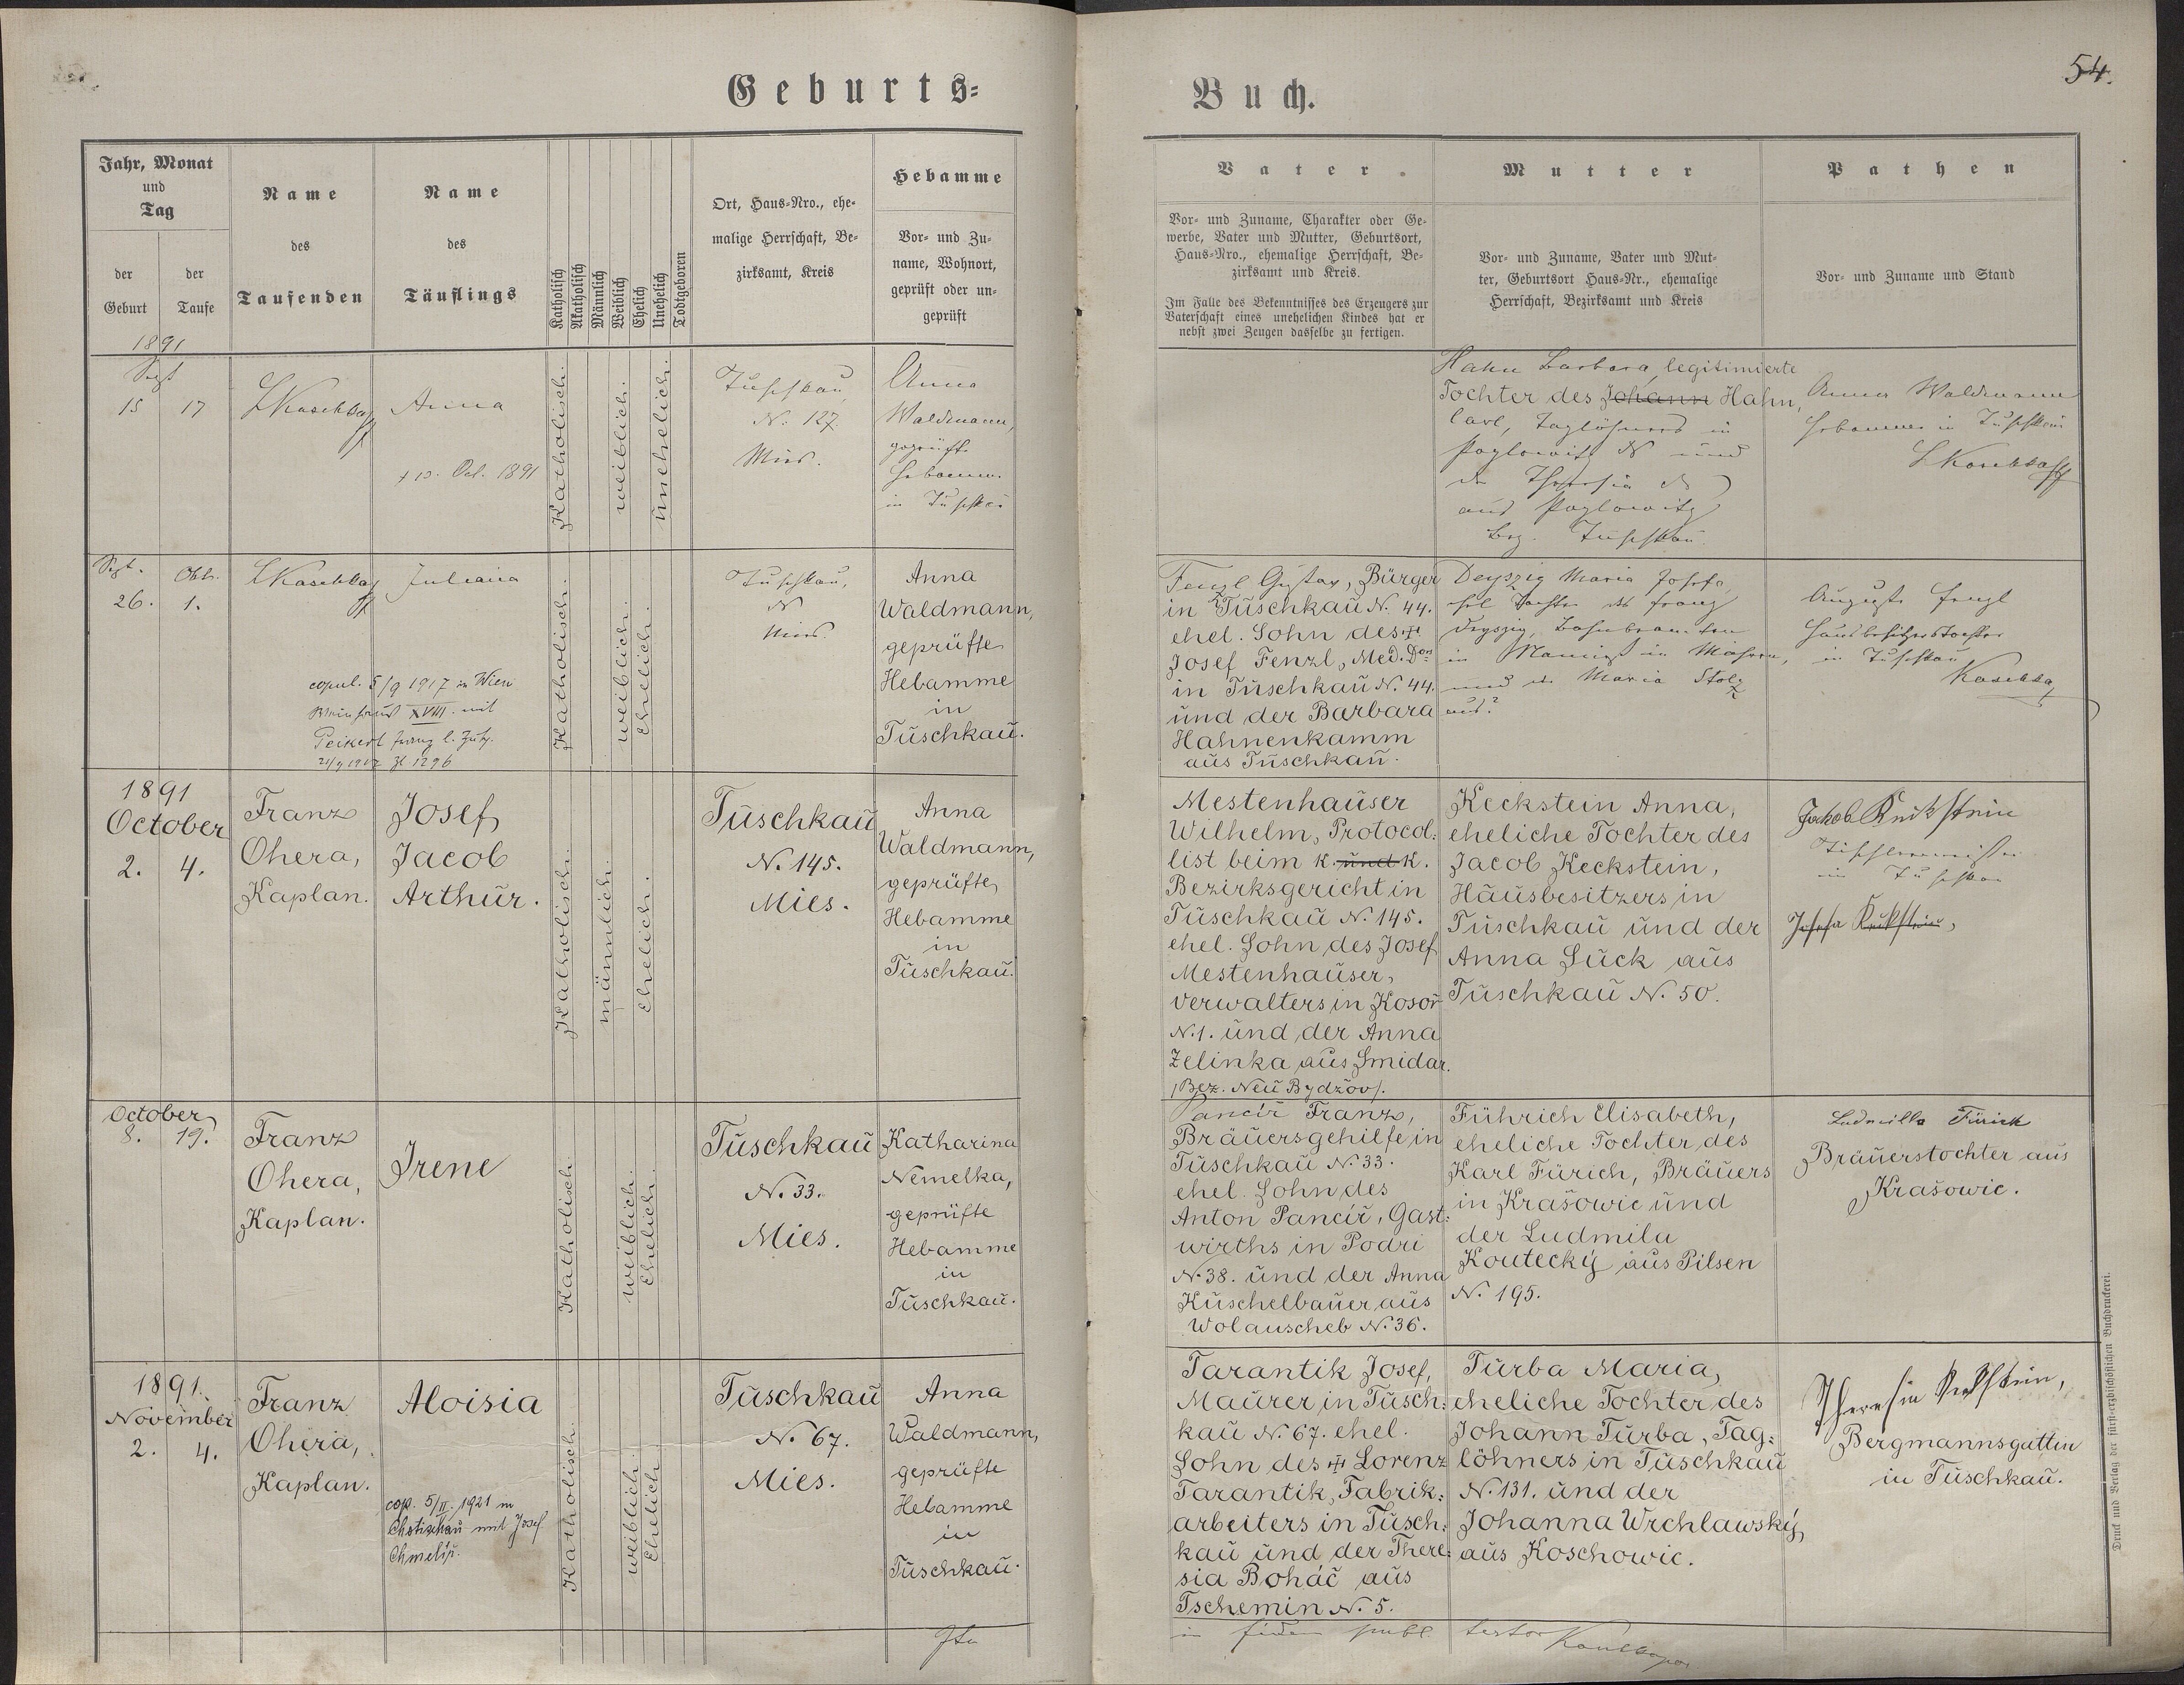 Geburts-
Buch.
54.
Jahr, Monat
und
Tag
der
Geburt
der
Taufe
Name
des
Taufenden
Name
des
Täuflings
Katholisch
Akatholisch
Männlich
Weiblich
Ehelich
Unehelich
Todtgeboren
Ort, Haus-Nro., ehe-
malige Herrschaft, Be-
zirksamt, Kreis
Hebamme
Vor- und Zu-
name, Wohnort,
geprüft oder un-
geprüft
Vater.
Vor- und Zuname, Charakter oder Ge-
werbe, Vater und Mutter, Geburtsort,
Haus-Nro., ehemalige Herrschaft, Be-
zirksamt und Kreis.
Im Falle des Bekenntnisses des Erzeugers zur
Vaterschaft eines unehelichen Kindes hat er
nebst zwei Zeugen dasselbe zu fertigen.
Mutter
Vor- und Zuname, Vater und Mut-
ter, Geburtsort Haus-Nr., ehemalige
Herrschaft, Bezirksamt und Kreis
Pathen
Vor- und Zuname und Stand
1891
Sept
15 17
Anna
+ 10. Oct. 1891
Katholisch.
weiblich.
unehelich.
Tuschkau
N. 127.
Mies.
Anna
Waldmann,
geprüfte
Hebamme
in Tuschkau
Hahn Barbara, legitimierte
Tochter des Johann Hahn,
Carl, Taglöhners in
und
der Theresia
aus
Bez. Tuschkau
Anna Waldmann
Hebamme in Tuschkau
Sept. Okt.
26. 1.
Juliana
copul. 5/9 1917 in Wien
XVIII. mit
Peikert Franz
Zl 1296
Katholisch.
weiblich.
Ehelich.
Tuschkau,
Mies.
Anna
Waldmann,
geprüfte
Hebamme
in
Tuschkau.
Fenzl Gustav, Bürger
in Tuschkau N. 44.
ehel. Sohn des +
Josef Fenzl, Med. Dors
in Tuschkau N. 44.
und der Barbara
Hahnenkamm
aus Tuschkau.
Deyszig Maria Josefa,
ehel Tochter des Franz
Deyszig, Bahnbeamten
in Mähren,
und der Maria Stolz
aus?
Auguste Fenzl
Hausbesitzerstochter
in Tuschkau
1891
October
2. 4.
Franz
Ohera,
Kaplan.
Josef
Jacob
Arthur.
Katholisch.
männlich.
Ehelich.
Tuschkau
N. 145.
Mies.
Anna
Waldmann,
geprüfte
Hebamme
in
Tuschkau.
Mestenhauser
Wilhelm, Protocol:
list beim k. und k.
Bezirksgericht in
Tuschkau N. 145.
ehel. Sohn des Josef
Mestenhauser,
Verwalters in Kosoř
N. 1. und der Anna
Zelinka aus Smidar.
/Bez. Neu Bydžov/.
Keckstein Anna,
eheliche Tochter des
Jacob Keckstein,
Hausbesitzers in
Tuschkau und der
Anna Suck aus
Tuschkau N. 50.
Jakob Keckstein
Tischlermeister
in Tuschkau
Josefa Keckstein,
October
8. 19.
Franz
Ohera,
Kaplan.
Irene
Katholisch.
weiblich.
Ehelich.
Tuschkau
N. 33.
Mies.
Katharina
Nemelka,
geprüfte
Hebamme
in
Tuschkau.
Pancíř Franz,
Bräuersgehilfe in
Tuschkau N. 33.
ehel. Sohn des
Anton Pancíř, Gast:
wirths in Podri
N. 38. und der Anna
Kuschelbauer aus
Wolauscheb N. 36.
Führich Elisabeth,
eheliche Tochter des
Karl Fürich, Bräuers
in Krašowic und
der Ludmila
Koutecký aus Pilsen
N. 195.
Ludmilla Fürich
Bräuerstochter aus
Krašowic.
1891.
November
2. 4.
Franz
Ohera,
Kaplan.
Aloisia
cop. 5/II. 1921 in
Chotieschau mit Josef
Katholisch.
weiblich.
Ehelich.
Tuschkau
N. 67.
Mies.
Anna
Waldmann,
geprüfte
Hebamme
in
Tuschkau.
Tarantik Josef,
Maurer in Tusch:
kau N. 67. ehel.
Sohn des + Lorenz
Tarantik, Fabrik:
arbeiters in Tusch:
kau und der There:
sia Boháč aus
Tschemin N. 5.
Turba Maria,
eheliche Tochter des
Johann Turba, Tag:
löhners in Tuschkau
N. 131. und der
Johanna Wrchlawský,
aus Koschowic.
Theresia Keckstein,
Bergmannsgattin
in Tuschkau.
Ita
in fidem publ. testor
Druck und Verlag der fürst-erzbischöflichen Buchdruckerei.